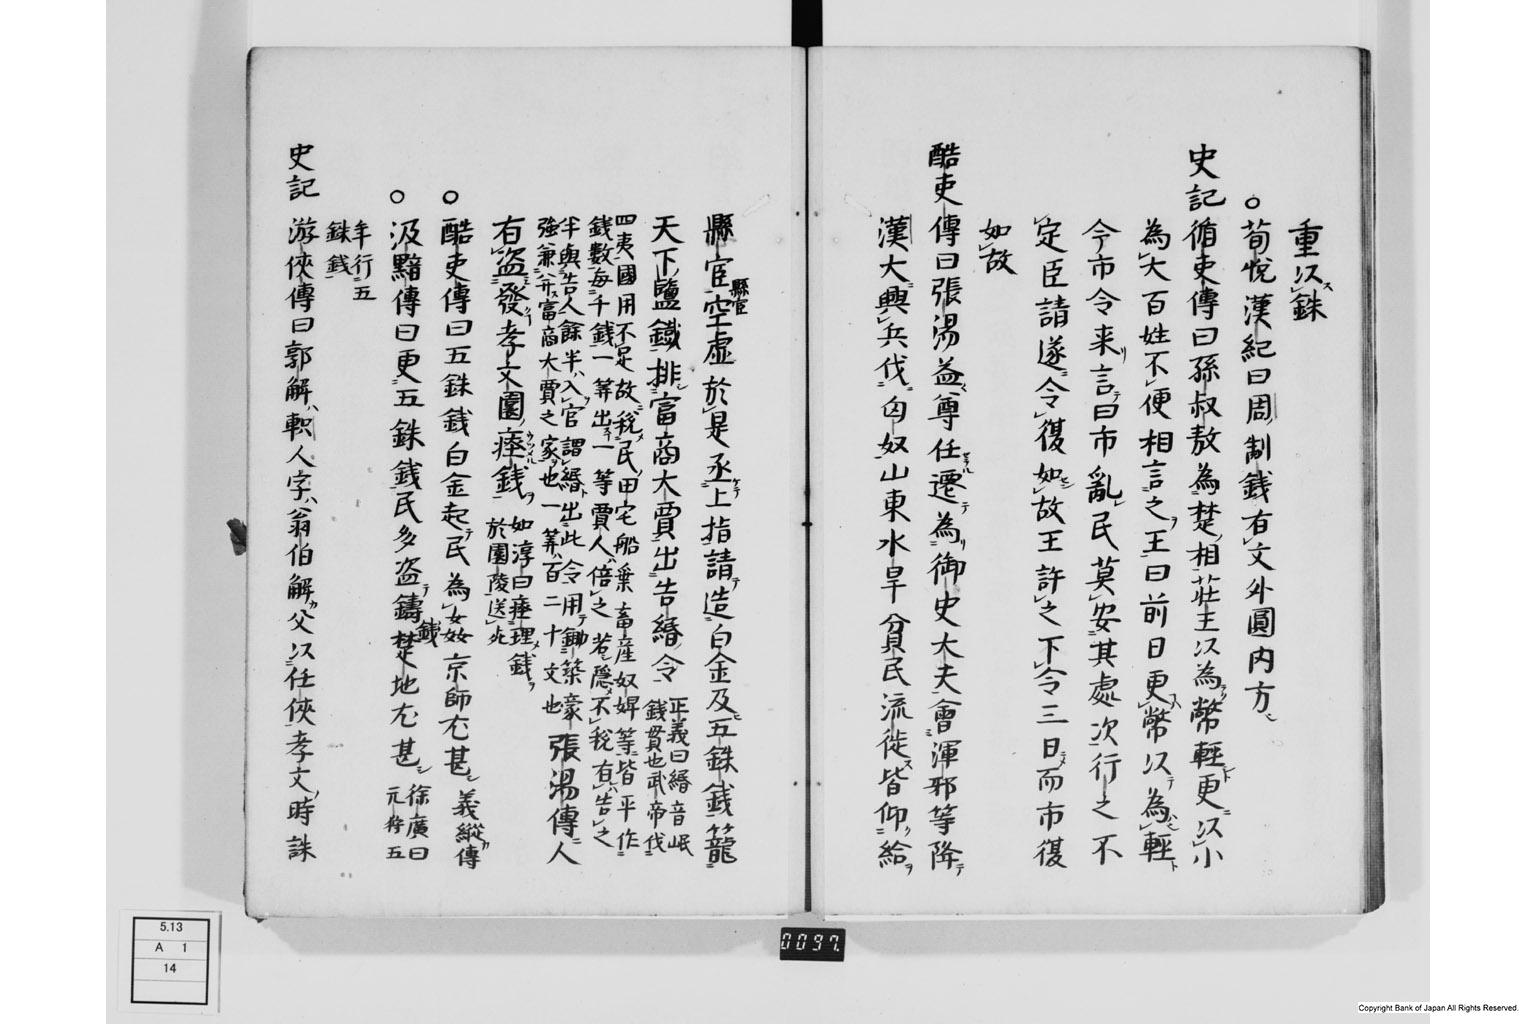 重以銖
○荀悦漢紀曰周制錢有文外圓内方
史記循吏傳曰孫叔敖為楚相莊王以為幣輕更以小
為大百姓不便相言之王曰前日更幣以為輕
今市令来言曰市亂民莫安其處次行之不
定臣請遂令復如故王許之下令三日而市復
如故
酷吏傳曰張湯益尊任遷為御史大夫會渾邪等降
漢大興兵伐匈奴山東水旱貧民流徙皆仰給
縣官空虛於是丞上指請造白金及五銖錢籠
縣官
天下鹽鐵排富商大賈出告緡令
正義曰緡音岷
錢貫也武帝伐
四夷國用不足故税民田宅船乗畜産奴婢等皆平作
錢數每千錢一筭出一等賈人倍之若隠不税有告之
半與告人餘半入官謂緡出此令用鋤築豪
強兼并富商大賈之家也一筭百二十文也
張湯傳人
有盗發孝文園瘞錢
如淳曰瘞埋錢
於園陵送死
○酷吏傳曰五銖錢白金起民為姦京師尤甚
義縱傳
○汲黯傳曰更五銖錢民多盗鑄錢楚地尤甚
徐廣曰
元狩五
年行五
銖錢
史記游俠傳曰郭解軹人字翁伯解父以任俠孝文時誅
0097.
5.13
A 1
14
Copyright Bank of Japan All Rights Reserved.